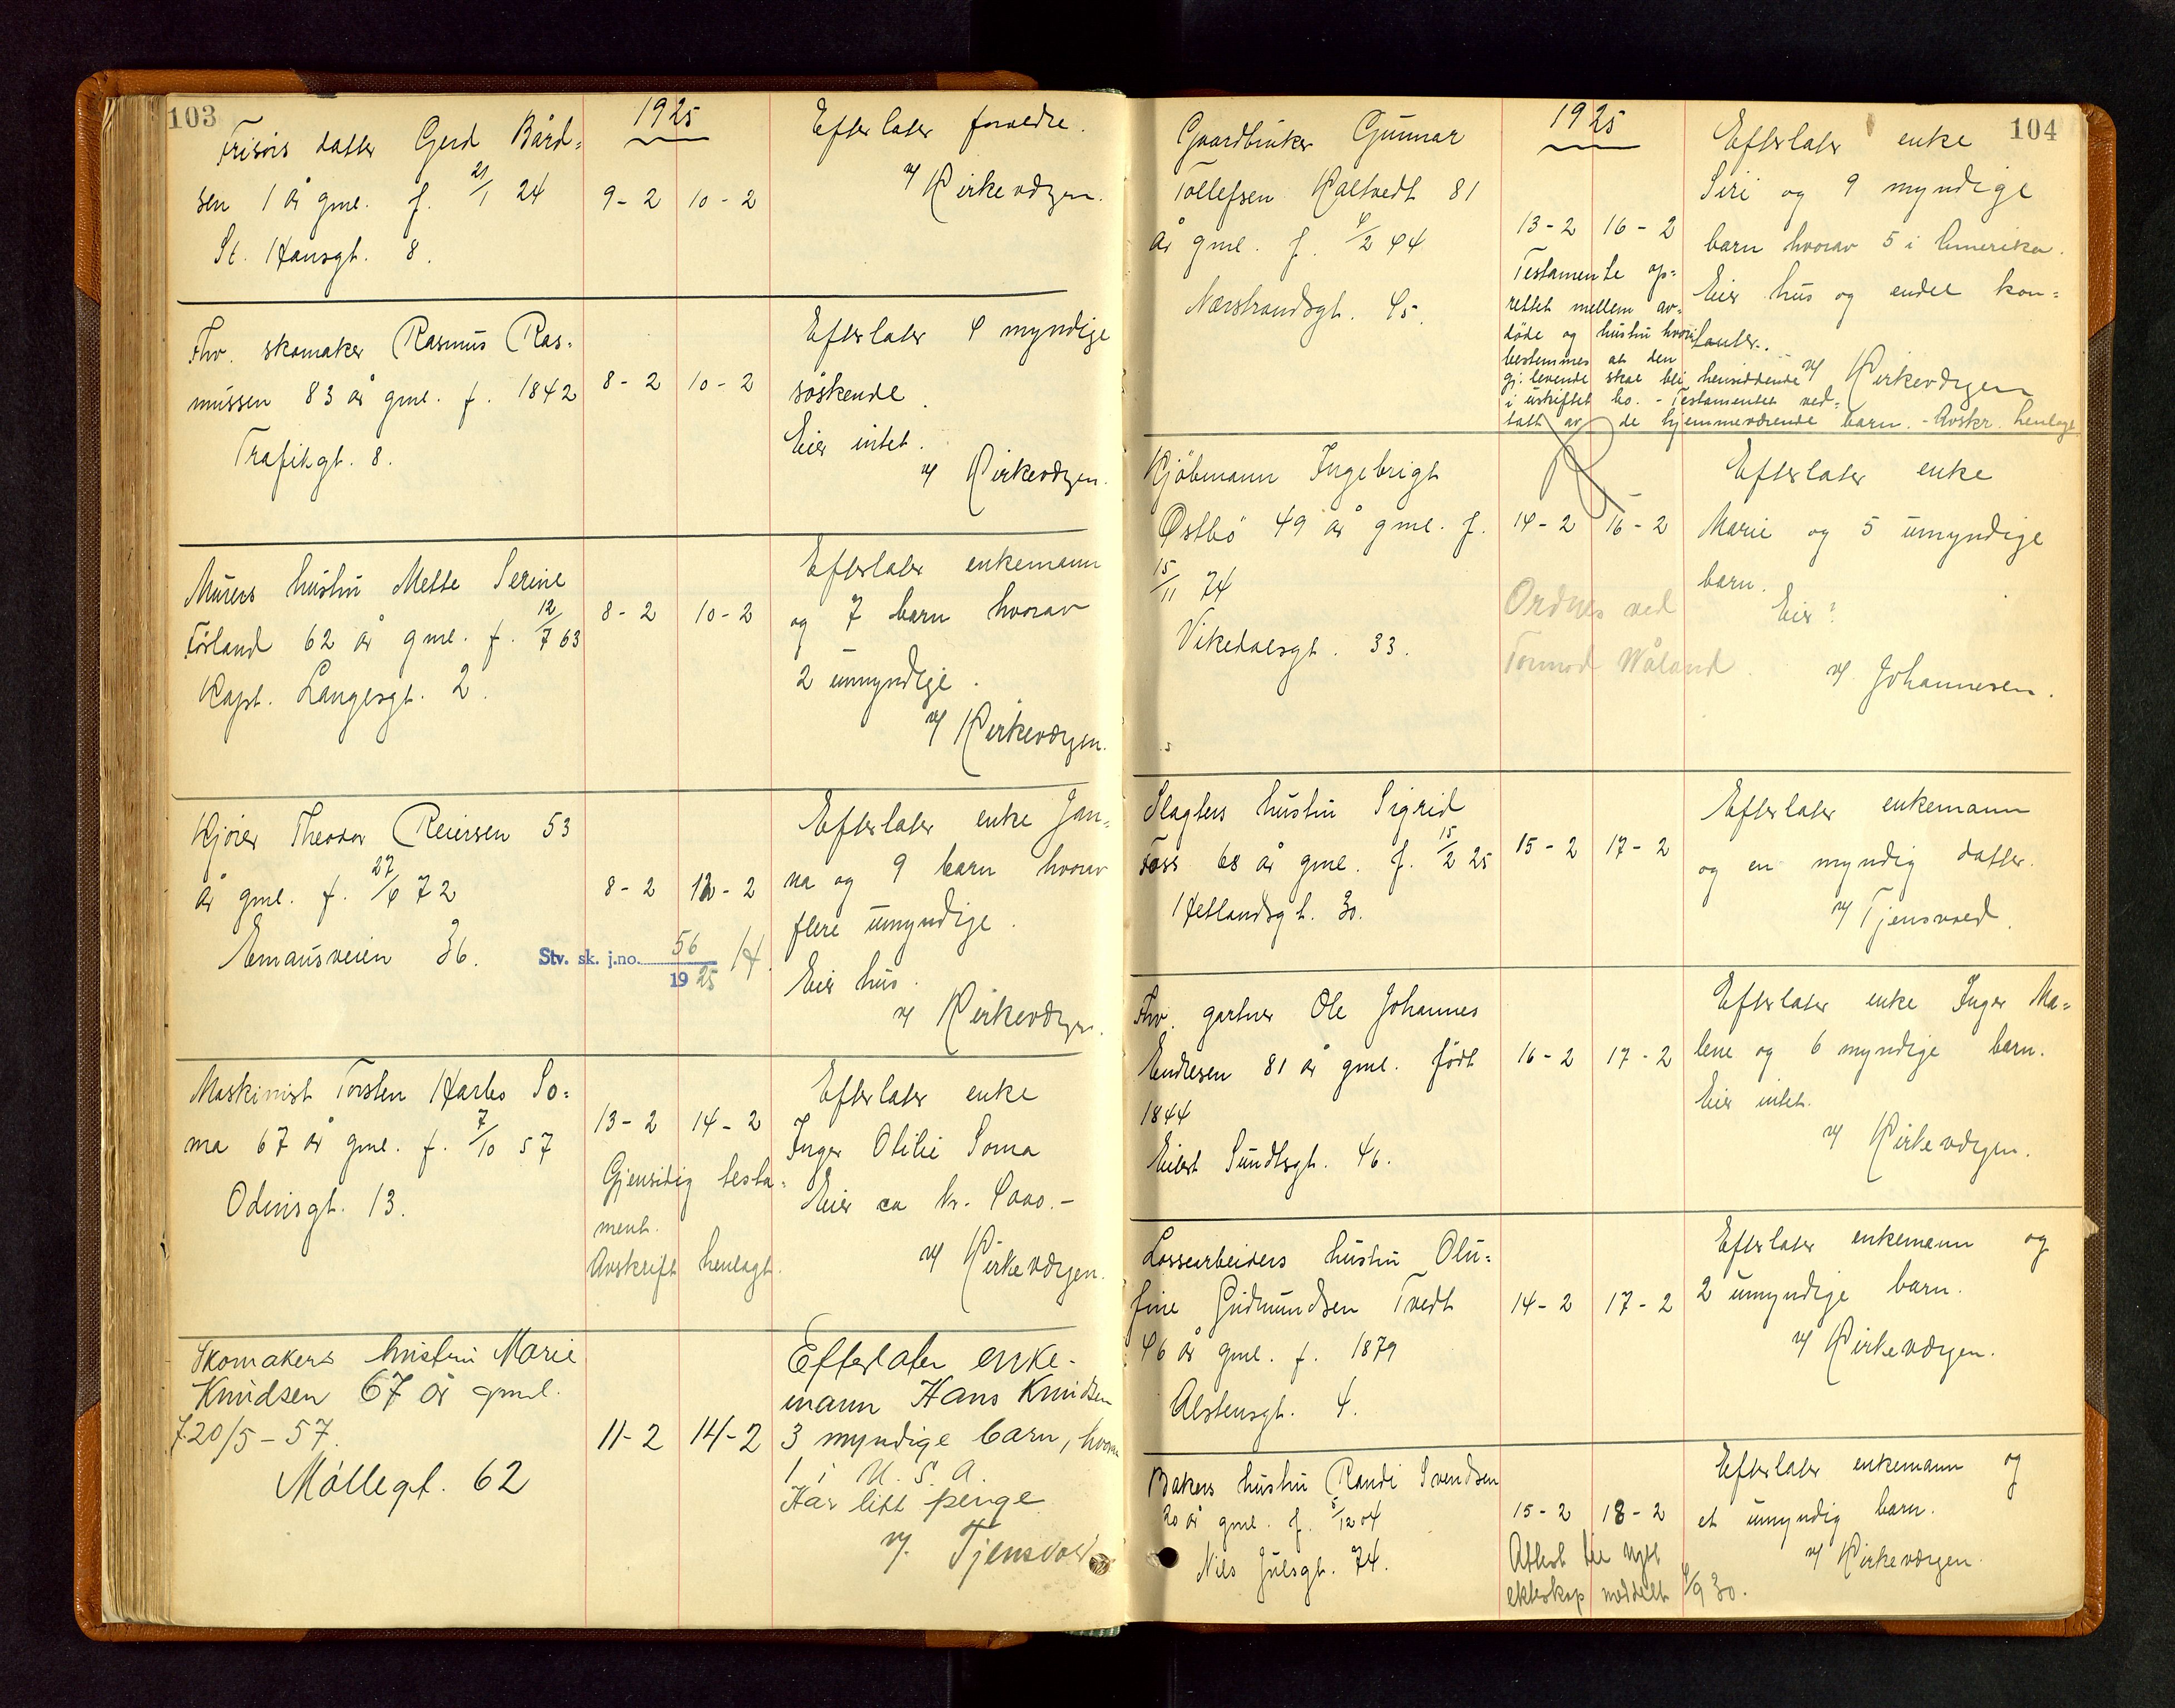 103
1925
Frisörs datter Gerd Bård=
sen 1 år gml. f. 21/1 24
St. Hansgt. 8.
9-2 10-2
Efterlater foreldre.
v/ Kirkevergen.
Fhv. skomaker Rasmus Ras=
mussen 83 år gml. f. 1842
Trafikgt. 8.
8-2 10-2
Efterlater 4 myndige
söskende.
Eier intet.
v/ Kirkevergen.
Murers hustru Mette Serine
Förland 62 år gml. f. 12/7 63
Kapt. Langesgt. 2.
8-2 10-2
Efterlater enkemann
og 7 barn hvorav
2 umyndige.
v/ Kirkevergen.
Kjörer Theodor Reiersen 53
år gml. f. 27/4 72
Emausveien 36.
8-2 12-2
Stv. sk. j.no. 56
1925
Efterlater enke Jan=
na og 9 barn hvorav
flere umyndige.
Eier hus.
v/ Kirkevergen.
Maskinist Torsten Harbo So=
ma 67 år gml. f. 7/10 57
Odinsgt. 13.
13-2 14-2
Gjensidig testa=
ment.
Avskrift henlagt.
Efterlater enke
Inger Otilie Soma
Eier ca kr. 4000.-
v/ Kirkevergen.
Skomakers hustru Marie
Knudsen 67 år gml.
f. 20/5-57.
Möllegt. 62
11-2 14-2
Efterlater enke-
mann Hans Knudsen
3 myndige barn, hvorav
1 i U.S.A.
Har litt penge
v/. Tjensvold
104
1925
Gaardbruker Gunnar
Tollefsen Kaltvedt 81
år gml. f. 4/2 44
Nærstrandsgt. 45.
13-2 16-2
Testamente op=
rettet mellem av=
döde og hustru hvori
bestemmes at den
gj. levende skal bli hensiddende
i uskiftet bo. - Testamentet ved=
tatt av de hjemmeværende barn. - Avskr. henlagt
Efterlater enke
Siri og 9 myndige
barn hvorav 5 i Amerika.
Eier hus og endel kon=
tanter.
v/ Kirkevergen
Kjöbmann Ingebrigt
Østbö 49 år gml. f.
15/11 74
Vikedalsgt. 33.
14-2 16-2
Ordnes ved
Tormod Wåland.
Efterlater enke
Marie og 5 umyndige
barn.
Eier?
v/ Johannesen.
Slagters hustru Sigrid
Foss 68 år gml. f. 15/2 25
Hetlandsgt. 30.
15-2 17-2
Efterlater enkemann
og en myndig datter.
v/ Tjensvoed.
Fhv. gartner Ole Johannes
Endresen 81 år gml. födt
1844
Eilert Sundtsgt. 46.
16-2 17-2
Efterlater enke Inger Ma=
lene og 6 myndige barn.
Eier intet.
v/ Kirkevergen.
Lossearbeiders hustru Olu=
fine Gudmundsen Tvedt
46 år gml. f. 1879
Alstensgt. 4.
14-2 17-2
Efterlater enkemann og
2 umyndige barn.
v/ Kirkevergen.
Bakers hustru Randi Svendsen
20 år gml. f. 5/12 04
Nils Julsgt. 74.
15-2 18-2
Attest til nytt
ekteskap meddelt 4/9 30.
Efterlater enkemann og
et umyndig barn.
v/ Kirkevergen.